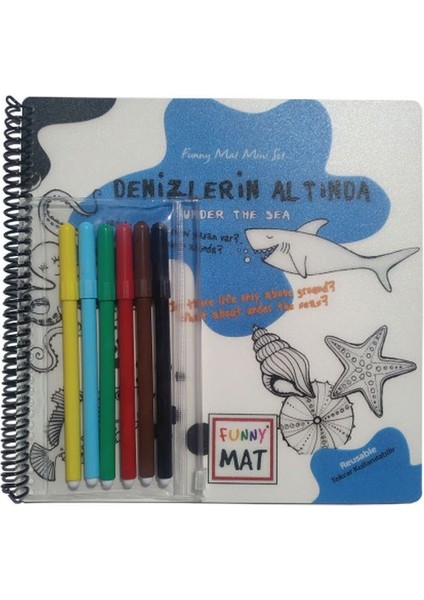 Funny Mat Mini Set
DENİZLERİN ALTINDA
UNDER THE SEA
var?
Is there life only above ground?
What about under the seas?
FUNNY
MAT
Reusable
Tekrar Kullanılabilir